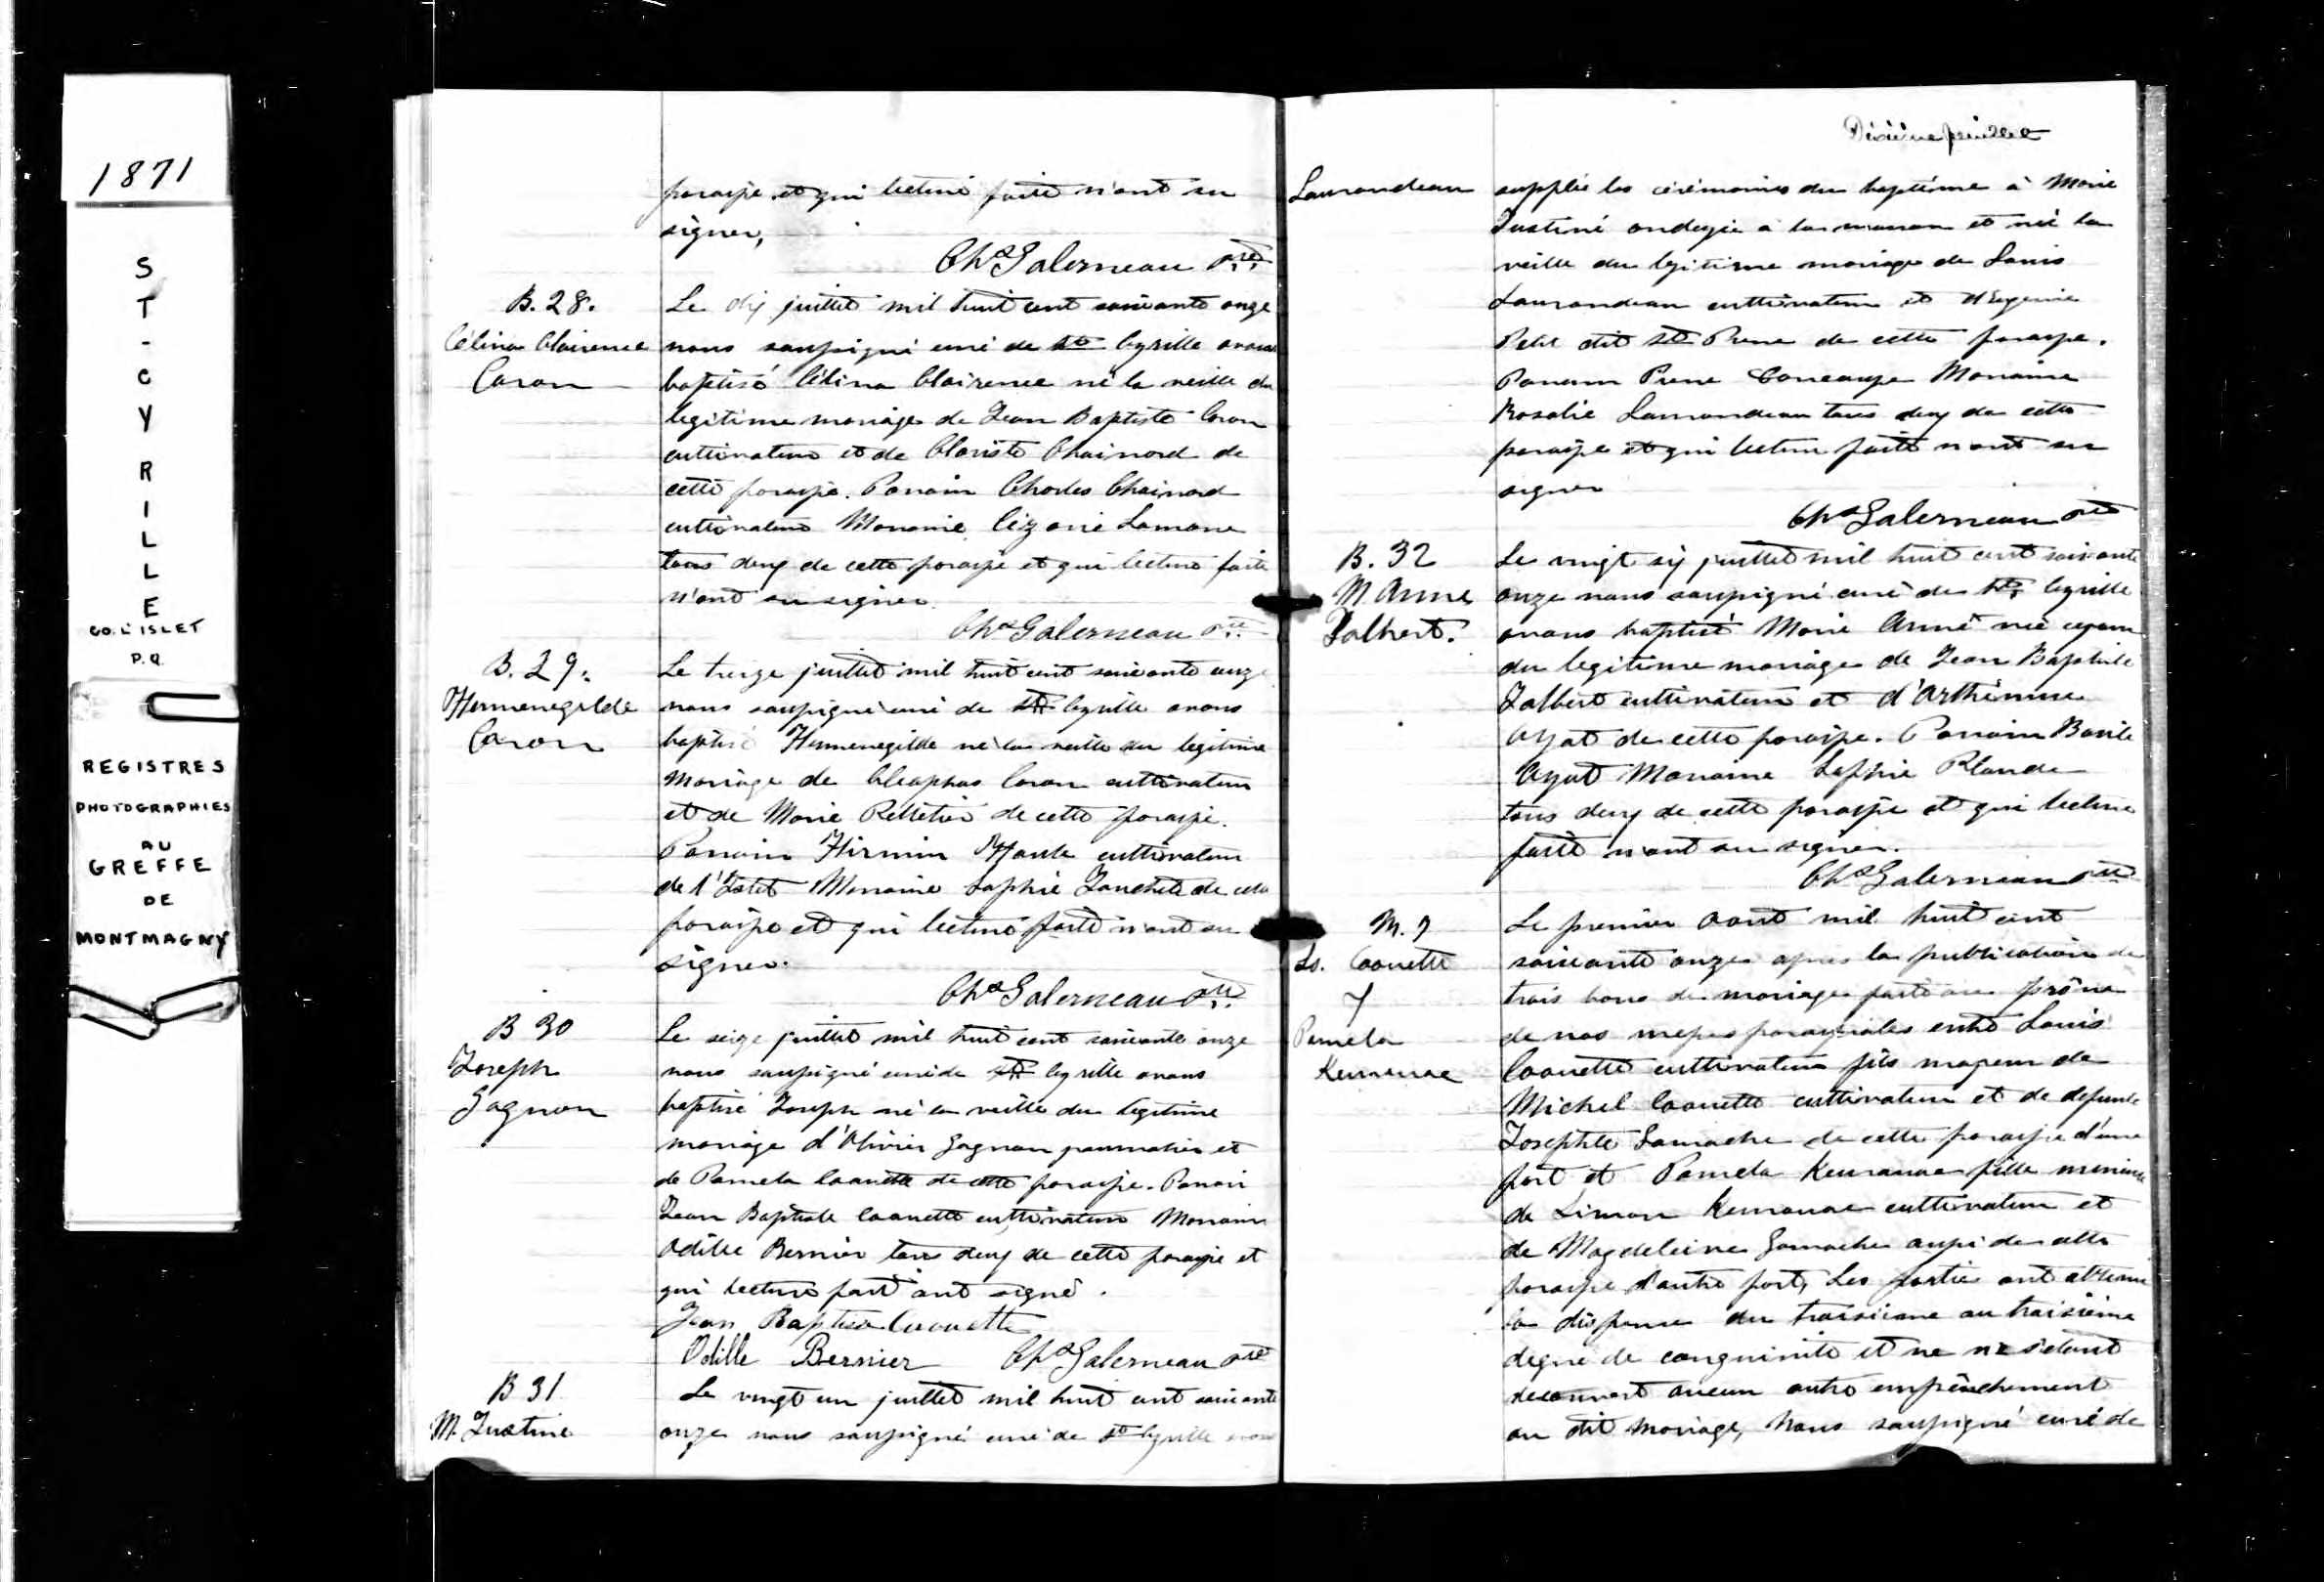 1871
ST-CYRILLE
CO. L'ISLET
P.Q.
REGISTRES
PHOTOGRAPHIES
AU
GREFFE
DE
MONTMAGNY
paroisse et qui lecture faite n'ont su
signer,
Chs Galerneau ptre
B. 28.
Célina Clairence
Caron
Le dix juillet mil huit cent soixante onze
nous soussigné curé de St Cyrille avons
baptisé Célina Clairence né la veille du
legitime mariage de Jean Baptiste Caron
cultivateur et de Clariste Chainard de
cette paroisse. Parrain Charles Chainard
cultivateur Marraine Cézarie Lamarre
tous deux de cette paroisse et qui lecture faite
n'ont su signer.
Chs Galerneau ptre
B. 29.
Hermenegilde
Caron
Le treize juillet mil huit cent soixante onze
nous soussigné curé de St Cyrille avons
baptisé Hermenegilde né la veille du legitime
mariage de Cléophas Caron cultivateur
et de Marie Pelletier de cette paroisse.
Parrain Firmin cultivateur
de l'Islet Marraine Sophie de cette
paroisse et qui lecture faite n'ont su
signer.
Chs Galerneau ptre
B 30
Joseph
Gagnon
Le seize juillet mil huit cent soixante onze
nous soussigné curé de St Cyrille avons
baptisé Joseph né la veille du legitime
mariage d'Olivier Gagnon journalier et
de Pamela Caouette de cette paroisse. Parrain
Jean Baptiste Caouette cultivateur Marraine
Odille Bernier tous deux de cette paroisse et
qui lecture fait ont signé.
Jean Baptiste Caouette
Odille Bernier Chs Galerneau ptre
B 31
M. Justine
Le vingt un juillet mil huit cent soixante
onze nous soussigné curé de St Cyrille avons
Dixième feuillet
Laurandeau
supplée les cérémonies du baptême à Marie
Justine ondoyée à la maison et née la
veille du legitime mariage de Louis
Laurandeau cultivateur et d'Eugenie
Petit dit St Pierre de cette paroisse.
Parrain Pierre Marraine
Rosalie Laurandeau tous deux de cette
paroisse et qui lecture faite n'ont su
signer
Chs Galerneau ptre
B. 32
M. Anne
Jalbert.
Le vingt six juillet mil huit cent soixante
onze nous soussigné curé de St Cyrille
avons baptisé Marie Anne née
du legitime mariage de Jean Baptiste
Jalbert cultivateur et d'Arthémise
de cette paroisse. Parrain Basile
Marraine Sophie
tous deux de cette paroisse et qui lecture
faite n'ont su signer.
Chs Galerneau ptre
Ls. Caouette
&
Pamela
Kerouac
Le premier Aout mil huit cent
soixante onze apres la publication de
trois bans de mariage faite au prône
de nos messes paroissiales entre Louis
Caouette cultivateur fils majeur de
Michel Caouette cultivateur et de defunte
Josephte Gamache de cette paroisse d'une
part et Pamela Kerouac fille mineure
de Simon Kerouac cultivateur et
de Magdeleine Gamache aussi de cette
paroisse d'autre part, Les parties ont obtenu
la dispense du troisieme au troisième
degré de et ne s'étant
decouvert aucun autre empêchement
au dit mariage, Nous soussigné curé de